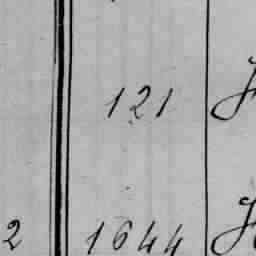 121
2 1644